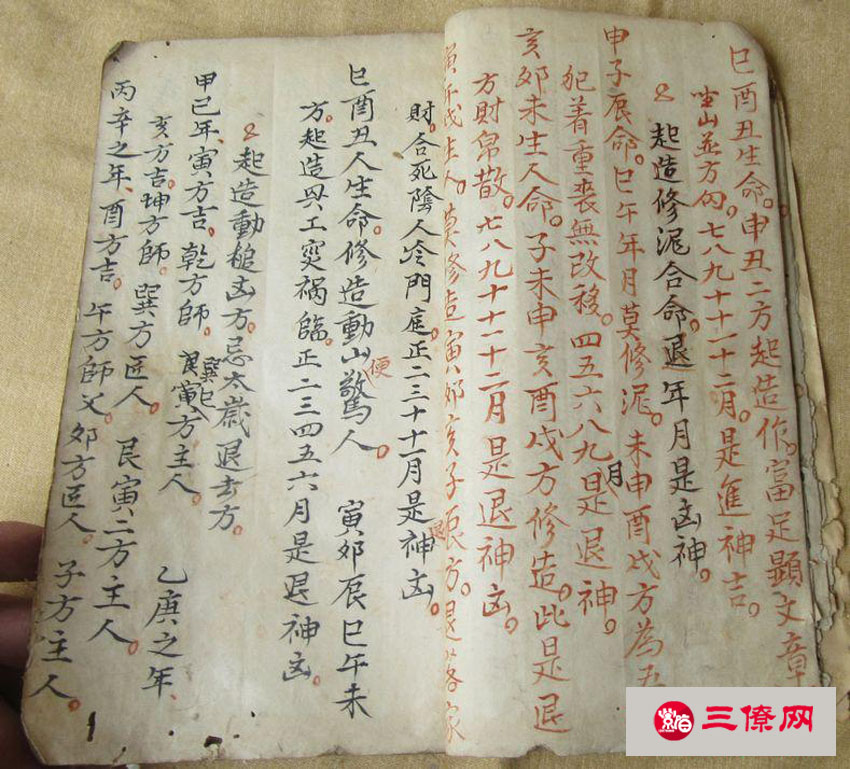 巳酉丑生命。申丑二方起造作。富足顯文章
坐山並方向。七八九十十一十二月。是進神吉。
起造修泥合命。退年月是凶神。
申子辰命。巳午年月莫修泥。未申酉戌方為五
犯着重喪無改移。四五六八九月是退神。
亥卯未生人命。子未申亥酉戌方修造。此是退
方財帛散。七八九十十一十二月是退神凶。
寅午戌生人。莫修造寅卯亥子辰方。退落家
財。合死陰人冷門庭。正二三十十一月是退神凶。
巳酉丑人生命。修造動山便驚人。寅卯辰巳午未
方。起造興工災禍臨。正二三四五六月是退神凶。
起造動槌凶方。忌太歲退去方。
甲己年、寅方吉。乾方師。巽巳方主人。乙庚之年、
亥方吉。坤方師。巽方匠人。艮寅二方主人。
丙辛之年、酉方吉。午方師父。卯方匠人。子方主人。
三僚网